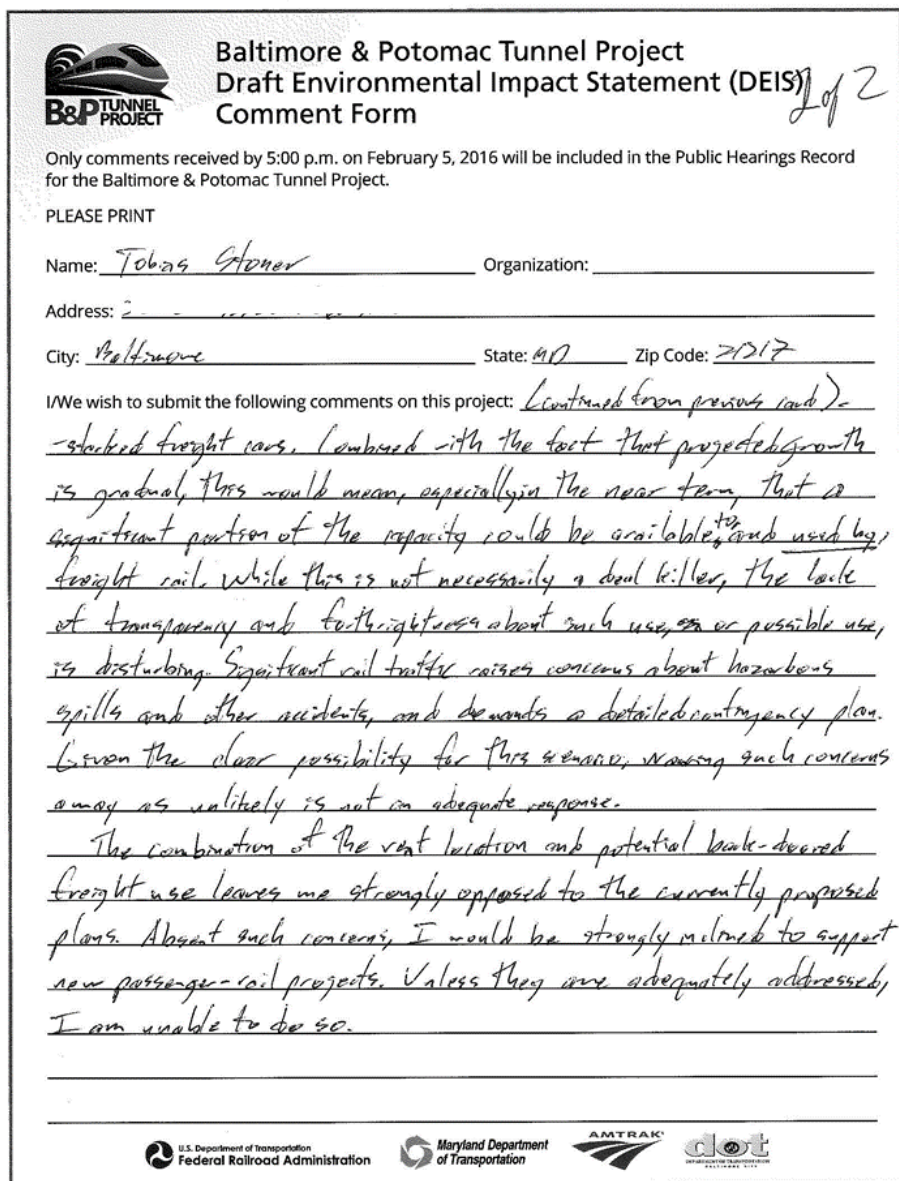 B&P TUNNEL PROJECT
Baltimore & Potomac Tunnel Project
Draft Environmental Impact Statement (DEIS)
Comment Form
2 of 2
Only comments received by 5:00 p.m. on February 5, 2016 will be included in the Public Hearings Record
for the Baltimore & Potomac Tunnel Project.
PLEASE PRINT
Name: Tobias Stoner Organization:
Address:
City: Baltimore State: MD Zip Code: 21217
I/We wish to submit the following comments on this project: (continued from previous card).
-stacked freight cars. Combined with the fact that projected growth
is gradual, this would mean, especially in the near term, that a
significant portion of the capacity could be available to, and used by,
freight rail. While this is not necessarily a deal killer, the lack
of transparency and forthrightness about such use, or possible use,
is disturbing. Significant rail traffic raises concerns about hazardous
spills and other accidents, and demands a detailed contingency plan.
Given the clear possibility for this scenario, waving such concerns
away as unlikely is not an adequate response.
The combination of the vent location and potential back-doored
freight use leaves me strongly opposed to the currently proposed
plans. Absent such concerns, I would be strongly inclined to support
new passenger-rail projects. Unless they are adequately addressed,
I am unable to do so.
U.S. Department of Transportation
Federal Railroad Administration
Maryland Department
of Transportation
AMTRAK
dot
DEPARTMENT OF TRANSPORTATION
BALTIMORE CITY